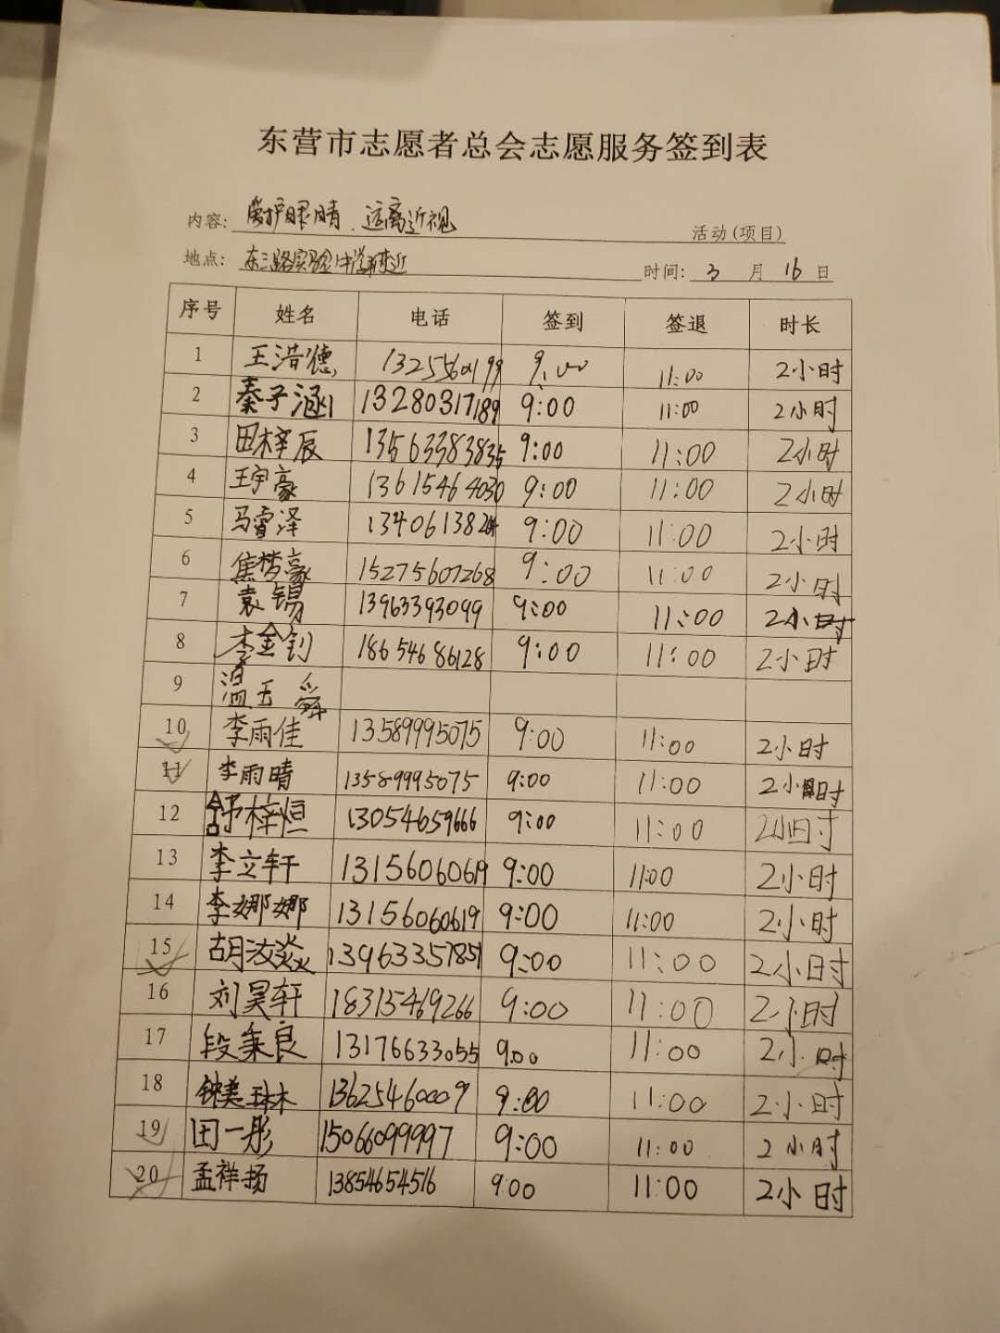 东营市志愿者总会志愿服务签到表
内容: 爱护眼睛、远离近视 活动(项目)
地点: 东三路实验中学附近 时间: 3 月 16 日
序号 姓名 电话 签到 签退 时长
1 王浩德 13255601199 9:00 11:00 2小时
2 秦子涵 13280317189 9:00 11:00 2小时
3 田梓辰 13563383835 9:00 11:00 2小时
4 王宇豪 13615464030 9:00 11:00 2小时
5 马睿泽 9:00 11:00 2小时
6 焦梦豪 15275607268 9:00 11:00 2小时
7 袁锡 13963393099 9:00 11:00 2小时
8 李金钊 18654686128 9:00 11:00 2小时
9 温玉舜
10 李雨佳 13589995075 9:00 11:00 2小时
11 李雨晴 13589995075 9:00 11:00 2小时
12 郜梓恒 13054659666 9:00 11:00 2小时
13 李立轩 13156060619 9:00 11:00 2小时
14 李娜娜 13156060619 9:00 11:00 2小时
15 胡汝焱 13963357851 9:00 11:00 2小时
16 刘昊轩 18315469266 9:00 11:00 2小时
17 段秉良 13176633055 9:00 11:00 2小时
18 钟美琳 13625460009 9:00 11:00 2小时
19 田一彤 15066099997 9:00 11:00 2小时
20 孟祥扬 13854654516 9:00 11:00 2小时